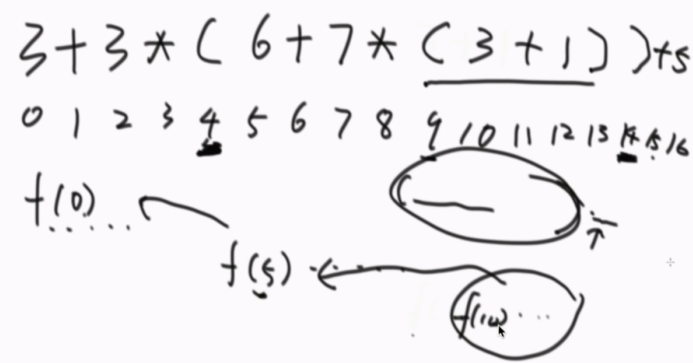 3+3*(6+7*(3+1))+5
0 1 2 3 4 5 6 7 8 9 10 11 12 13 14 15 16
f(0)
f(5)
f(10)